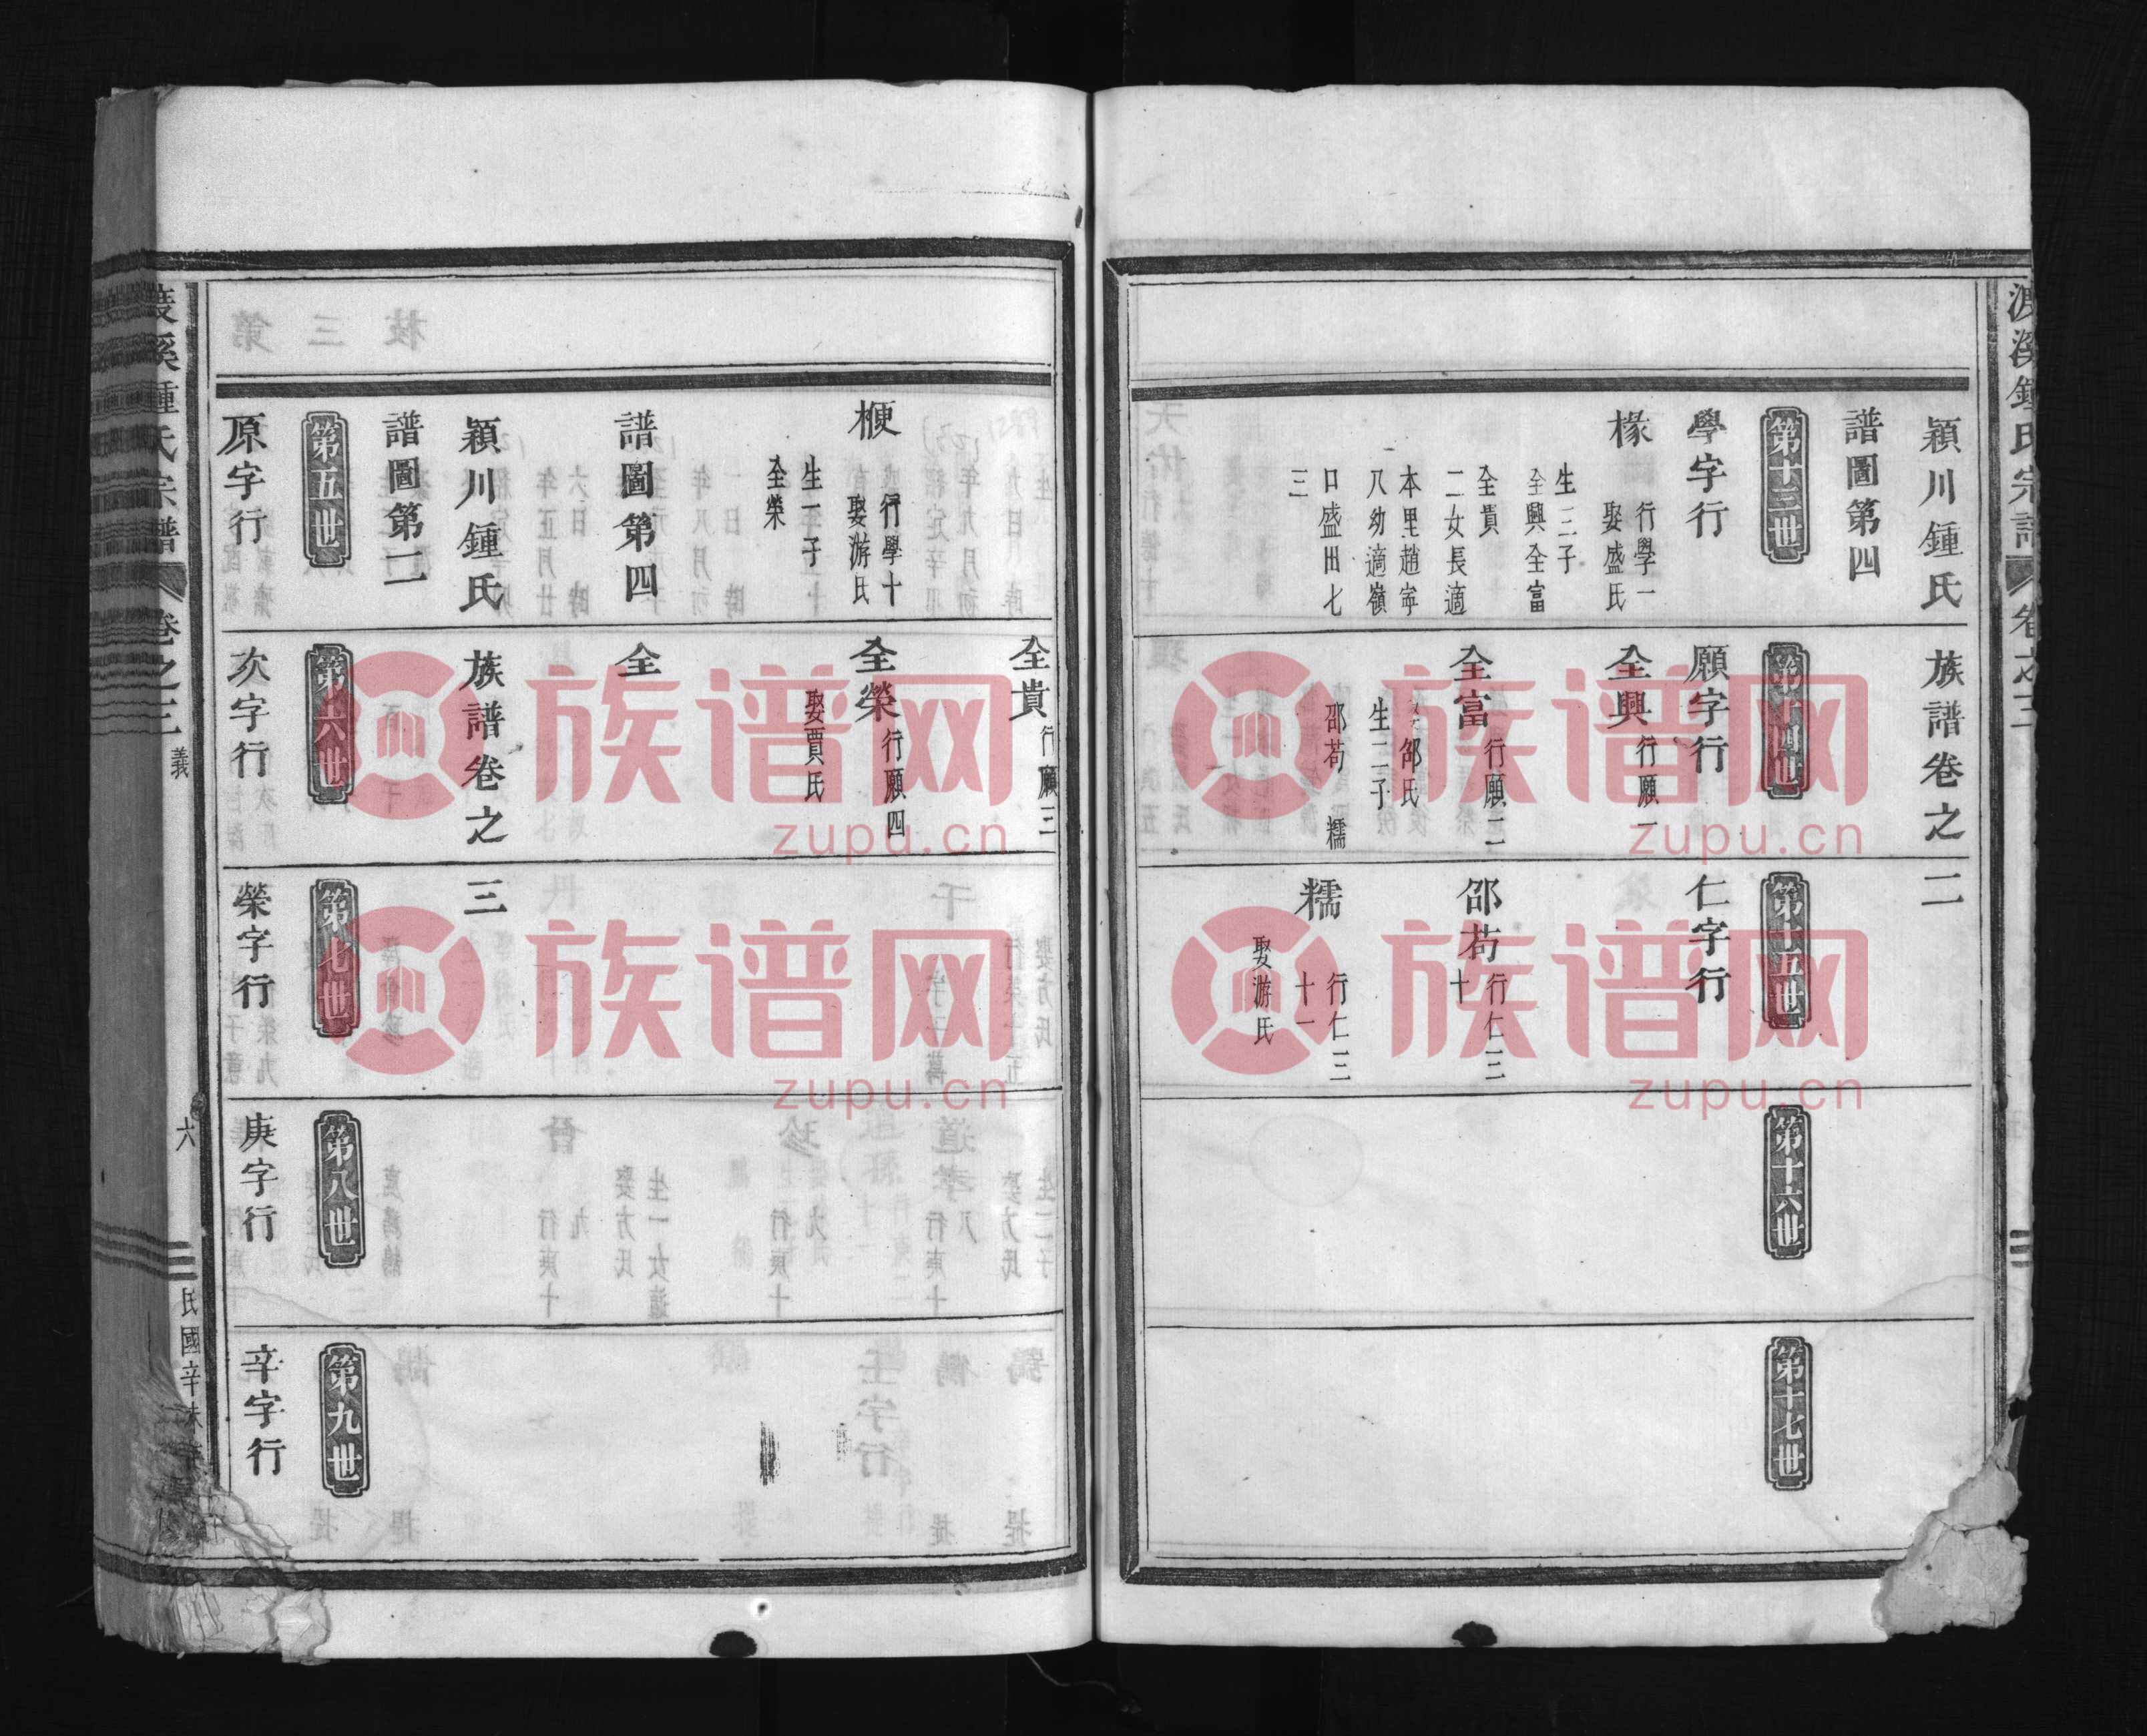 潁川鍾氏 族譜卷之二
譜圖第四
第十三世
學字行
椽 行學一
娶盛氏
生三子
全興全富
全貴
二女長適
本里趙寧
八幼適嶺
口盛田七
三
第十四世
願字行
全興 行願一
全富 行願二
邰氏
生二子
邵苟 糯
第十五世
仁字行
邵苟 行仁三
十
糯 行仁三
十一
娶游氏
第十六世
第十七世
全貴 行願三
楩 行學十
娶游氏
生一子
全榮
全榮 行願四
娶賈氏
譜圖第四 全
潁川鍾氏 族譜卷之三
譜圖第一
第五世
原字行
第六世
次字行
第七世
榮字行
第八世
庚字行
第九世
辛字行
溪鍾氏宗譜 卷之三 義
六
民國辛未
族谱网
zupu.cn
族谱网
zupu.cn
族谱网
zupu.cn
族谱网
zupu.cn